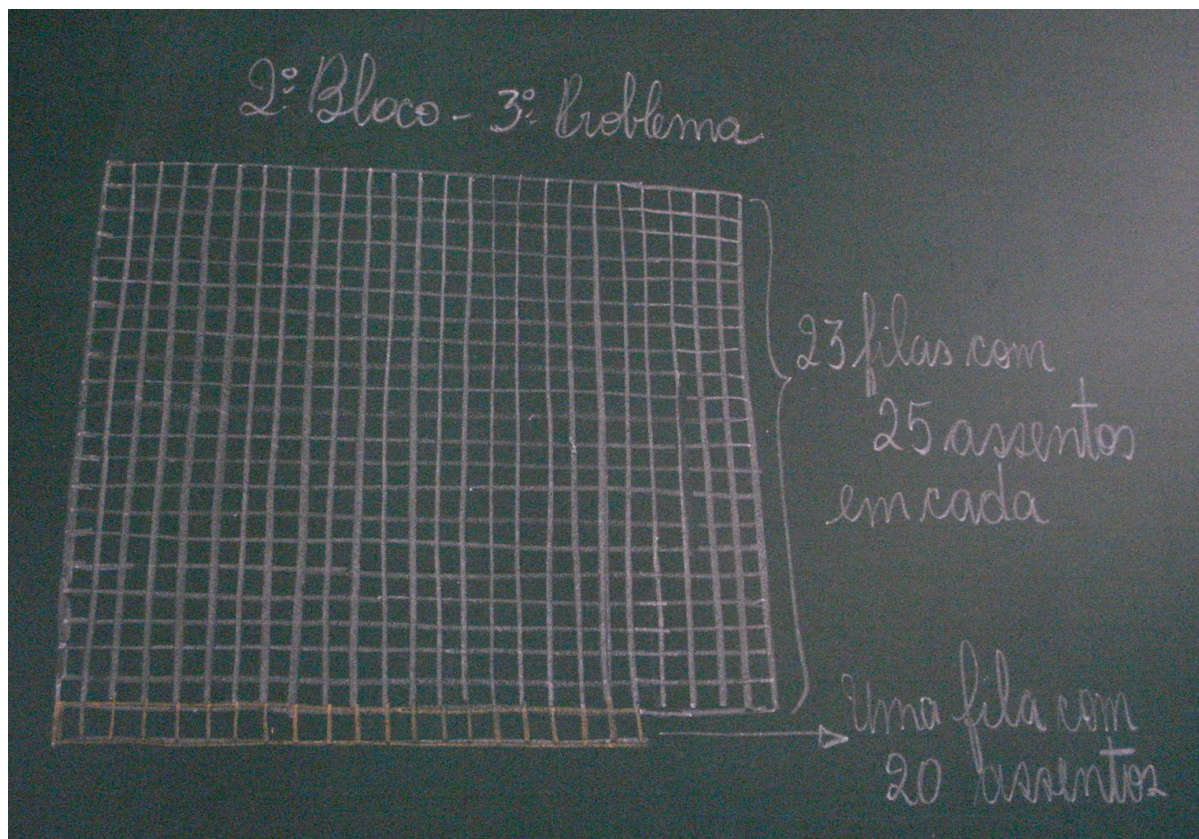 2º Bloco - 3º Problema
23 filas com
25 assentos
em cada
Uma fila com
20 assentos